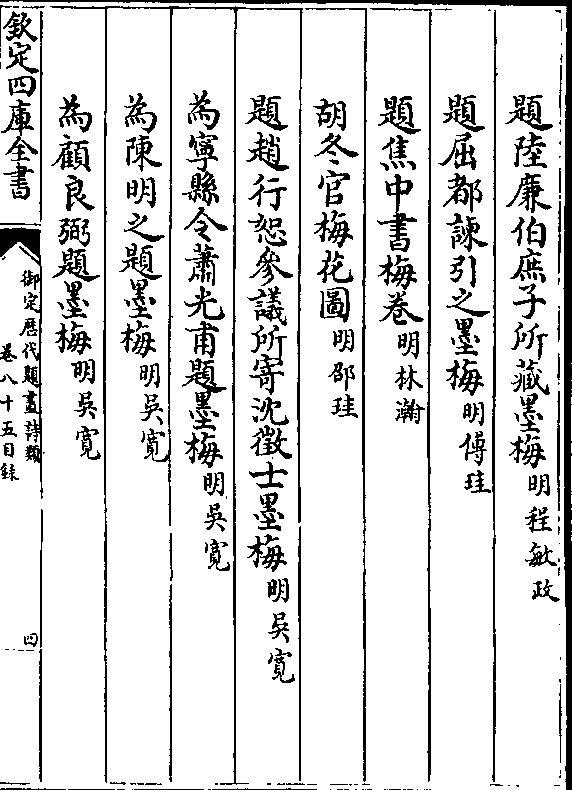 題陸廉伯庶子所藏墨梅明程敏政
題屈都諫引之墨梅明傅珪
題焦中書梅卷明林瀚
胡冬官梅花圖明邵珪
題趙行恕參議所寄沈徵士墨梅明吳寬
為寧縣令蕭光甫題墨梅明吳寬
為陳明之題墨梅明吳寬
為顧良弼題墨梅明吳寬
欽定四庫全書
御定歷代題畫詩類
卷八十五目錄
四